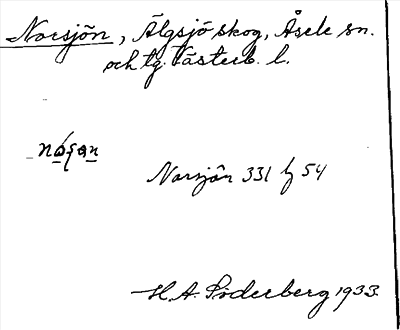 Norsjön, Älgsjö skog, Åsele sn.
och tg. Västerb. l.
Norsjön 331 54
H. A. Söderberg 1933.